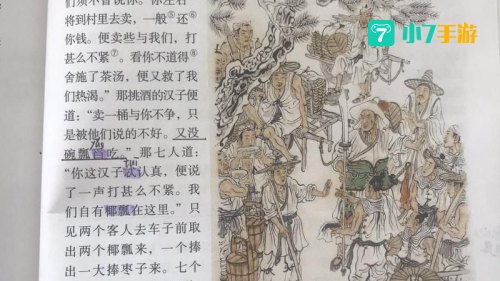 们须不曾说你。你左右
将到村里去卖，一般⑤还
你钱。便卖些与我们，打
甚么不紧⑦。看你不道得⑧
舍施了茶汤，便又救了我
们热渴。”那挑酒的汉子便
道：“卖一桶与你不争，只
是被他们说的不好。又没
碗瓢舀吃。”那七人道：
“你这汉子忒认真，便说
了一声打甚么不紧。我
们自有椰瓢在这里。”只
见两个客人去车子前取
出两个椰瓢来，一个捧
出一大捧枣子来。七个
小7手游